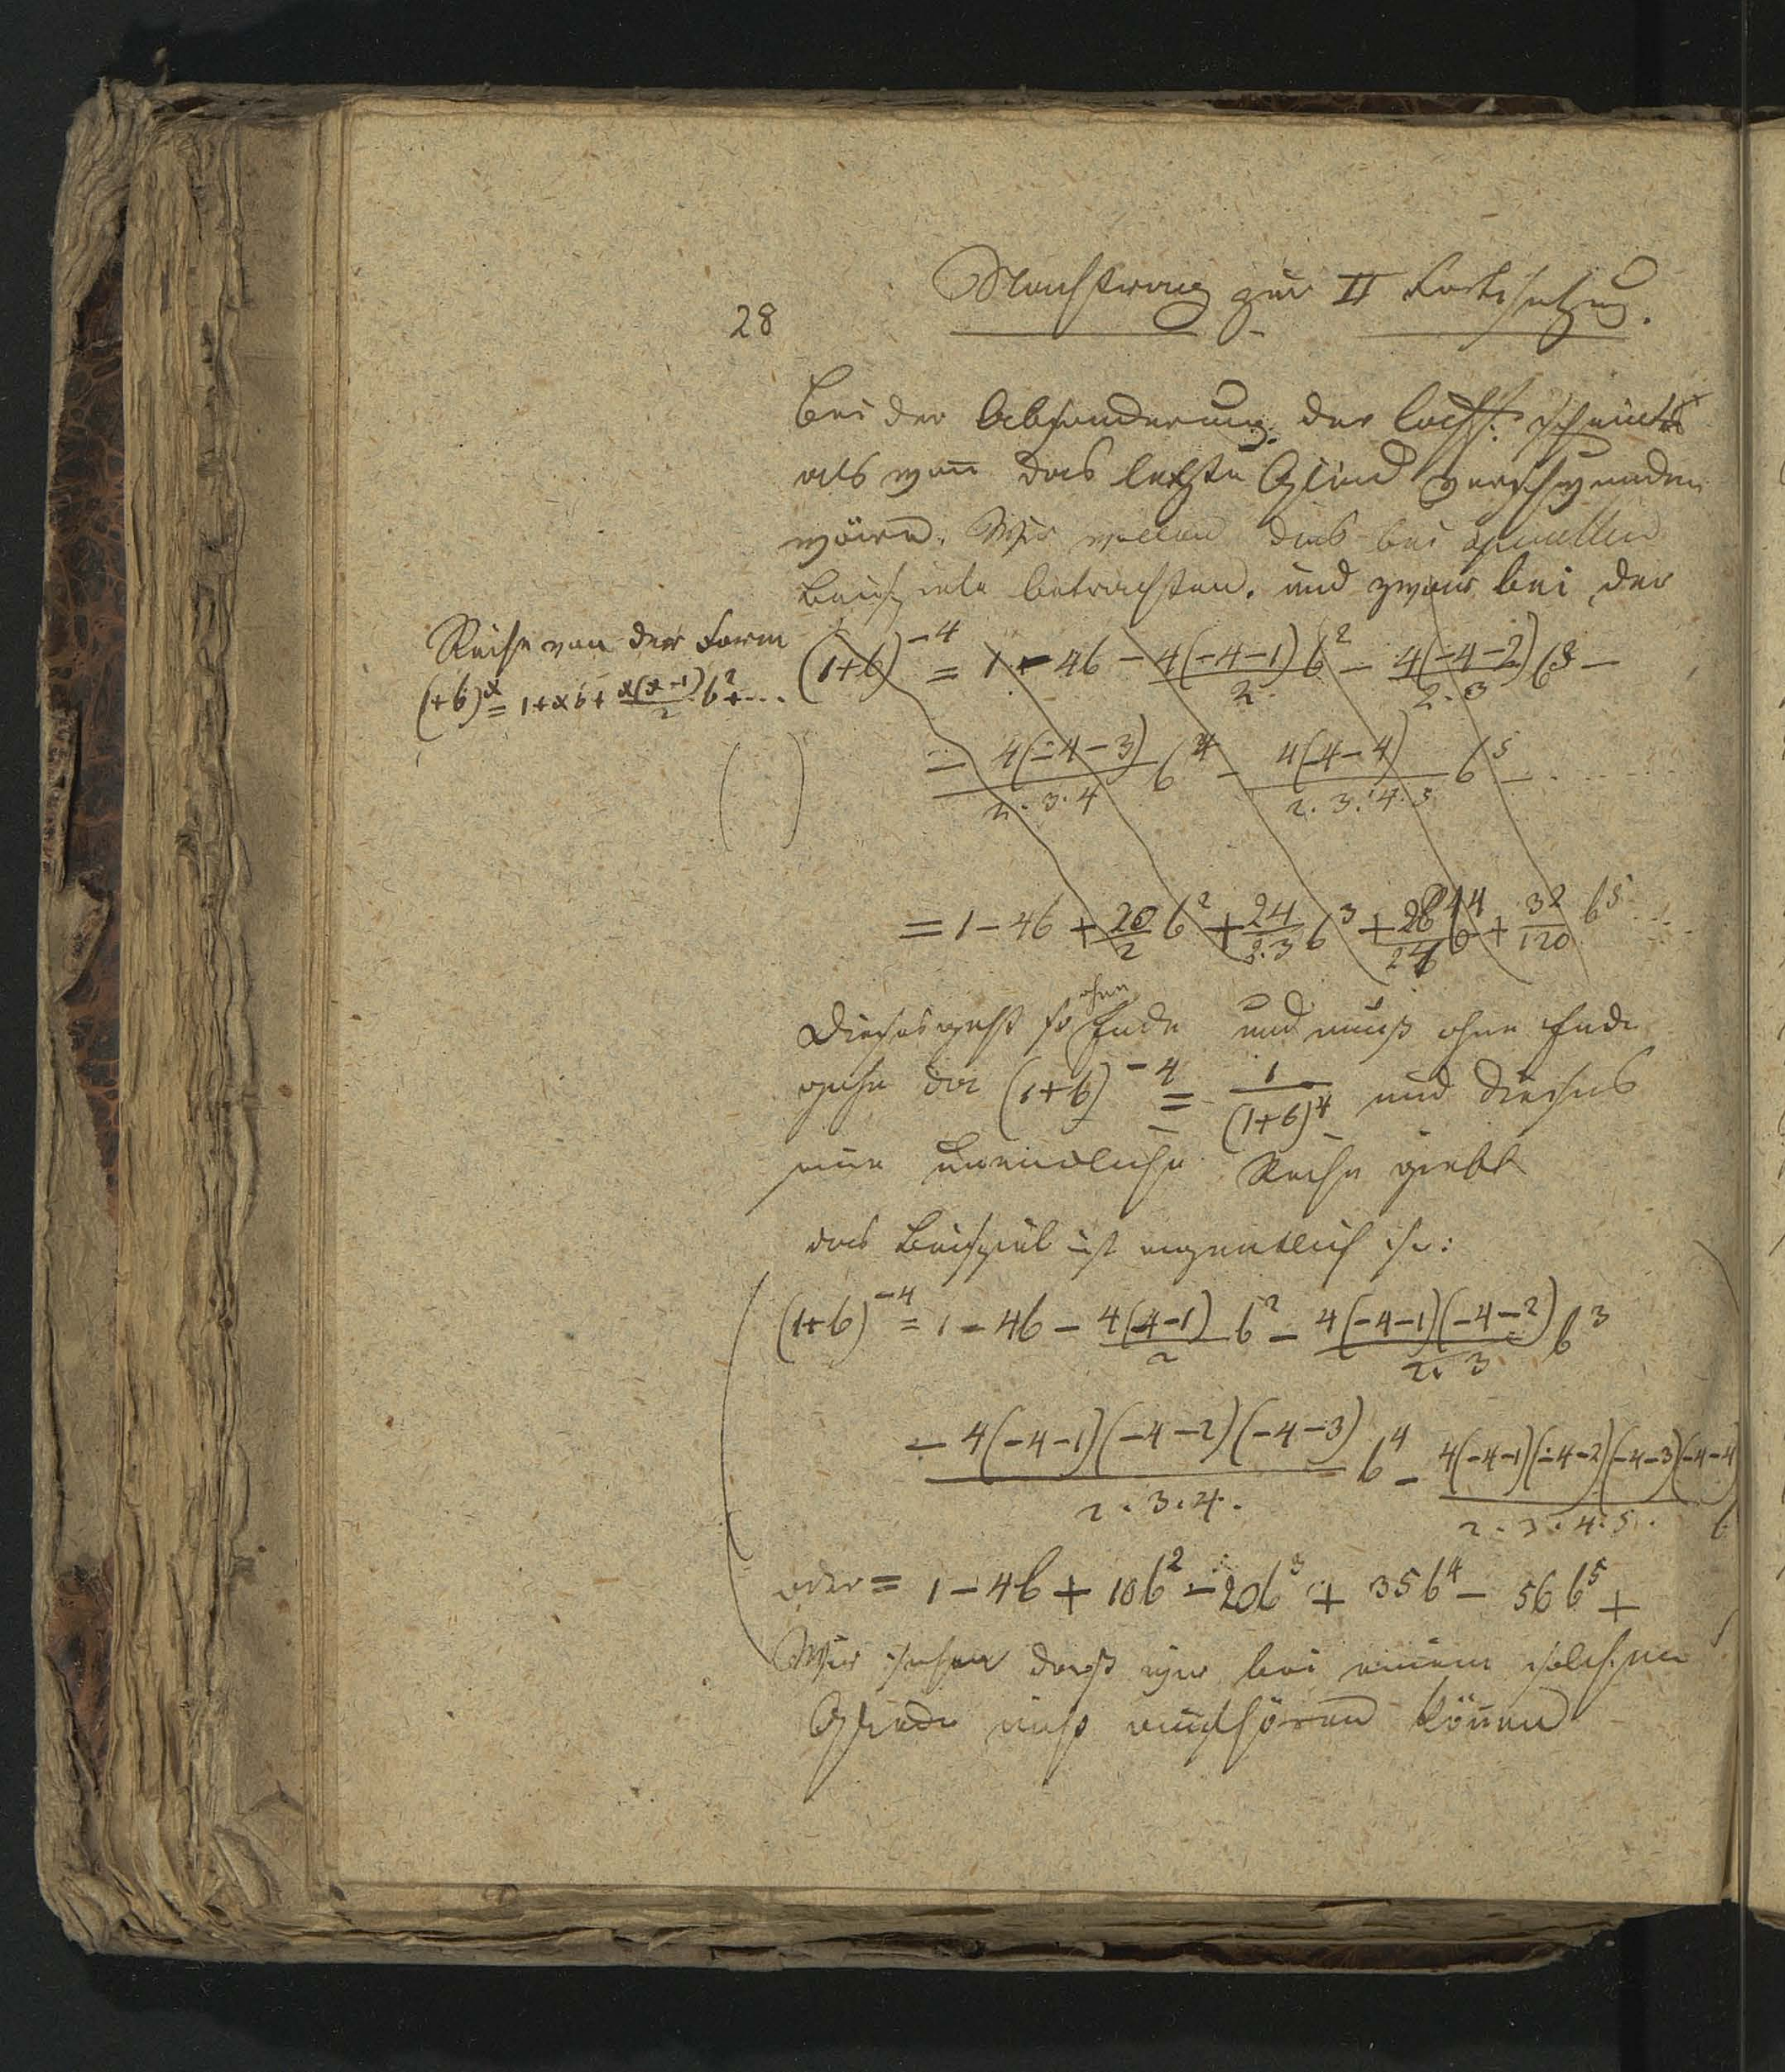 28
Nachtrag zur II Fortsetzung.
Bei der Absonderung der Coeff. scheint es
als wen̅ das letzte Glied verschwunden
wäre. Wir wollen dies bei speciellen
Beispiele betrachten. und zwar bei der
Reihe von der Form
(1+b)^x = 1+xb+ x(x-1)/2 b^2+...
(1+b)^-4 = 1 - 4b - 4(-4-1)/2 b^2 - 4(-4-2)/2·3 b^3 -
- 4(-4-3)/2·3·4 b^4 - 4(4-4)/2·3·4·5 b^5 - ......
= 1 - 4b + 20/2 b^2 + 24/2·3 b^3 + 28/24 b^4 + 32/120 b^5 ...
Dieses geht so ohne Ende und muß ohne Ende
gehn da (1+b)^-4 = 1/(1+b)^4 und dieses
eine unendliche Reihe giebt
das Beispiel ist eigentlich so:
(1+b)^-4 = 1 - 4b - 4(4-1)/2 b^2 - 4(-4-1)(-4-2)/2·3 b^3
- 4(-4-1)(-4-2)(-4-3)/2·3·4· b^4 - 4(-4-1)(-4-2)(-4-3)(-4-4)/2·3·4·5· b
oder = 1 - 4b + 10b^2 - 20b^3 + 35b^4 - 56b^5 +
Wir sehen daß wir bei einem solchen
Gliede nicht aufhören kön̅en